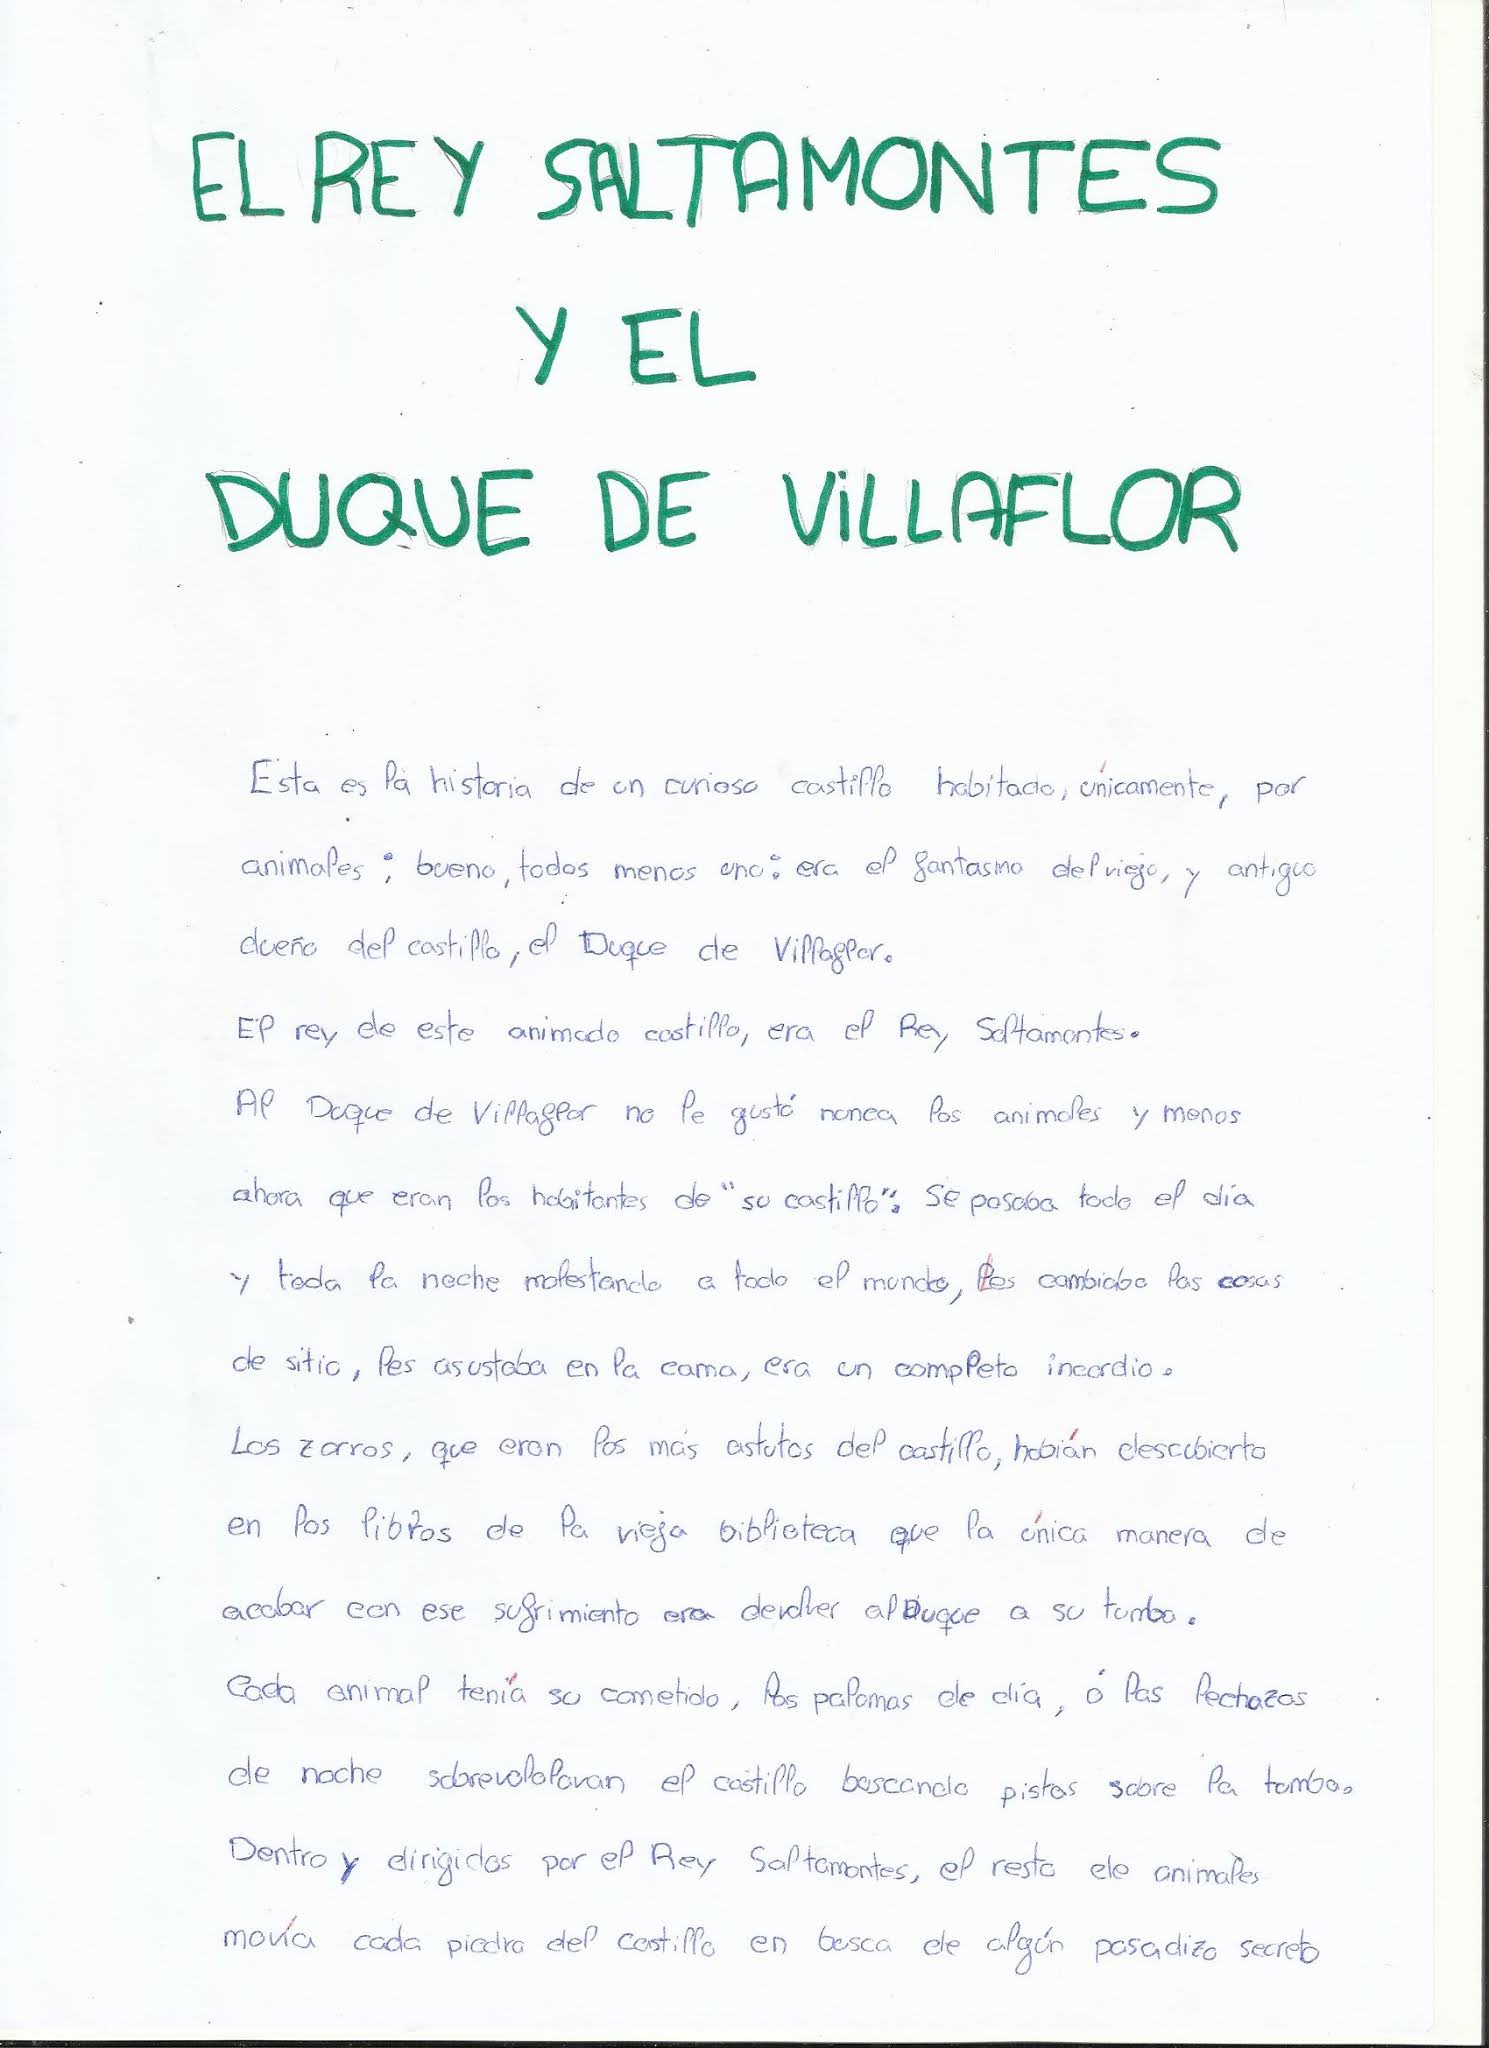 EL REY SALTAMONTES
Y EL
DUQUE DE VILLAFLOR
Esta es la historia de un curioso castillo habitado, únicamente, por
animales; bueno, todos menos uno: era el fantasma del viejo, y antiguo
dueño del castillo, el Duque de Villaflor.
El rey de este animado castillo, era el Rey Saltamontes.
Al Duque de Villaflor no le gustó nunca los animales y menos
ahora que eran los habitantes de "su castillo". Se pasaba todo el día
y toda la noche molestando a todo el mundo, les cambiaba las cosas
de sitio, les asustaba en la cama, era un completo incordio.
Los zorros, que eran los más astutos del castillo, habián descubierto
en los libros de la vieja biblioteca que la única manera de
acabar con ese sufrimiento era devolver al Duque a su tumba.
Cada animal tenía su cometido, las palomas de día, ó las lechazas
de noche sobrevololavan el castillo buscando pistas sobre la tumba.
Dentro y dirigidos por el Rey Saltamontes, el resto de animales
movía cada piedra del castillo en busca de algún pasadizo secreto